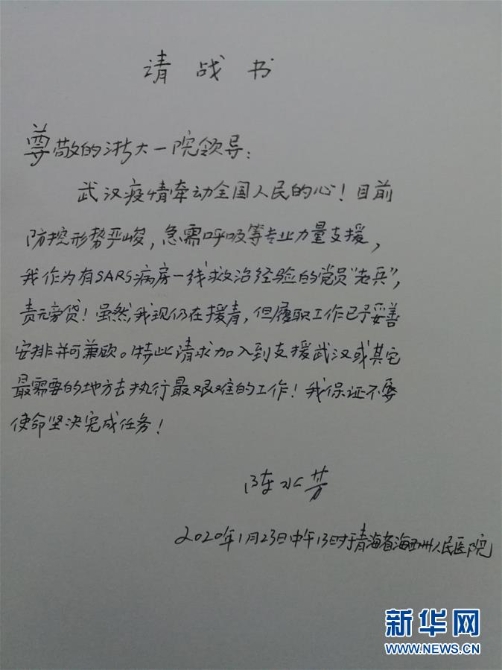 请战书
尊敬的浙大一院领导：
武汉疫情牵动全国人民的心！目前
防控形势严峻，急需呼吸等专业力量支援，
我作为有SARS病房一线救治经验的党员“老兵”，
责无旁贷！虽然我现仍在援青，但履职工作已予妥善
安排并可兼顾。特此请求加入到支援武汉或其它
最需要的地方去执行最艰难的工作！我保证不辱
使命坚决完成任务！
陈水芳
2020年1月23日中午13时于青海省海西州人民医院
新华网
WWW.NEWS.CN